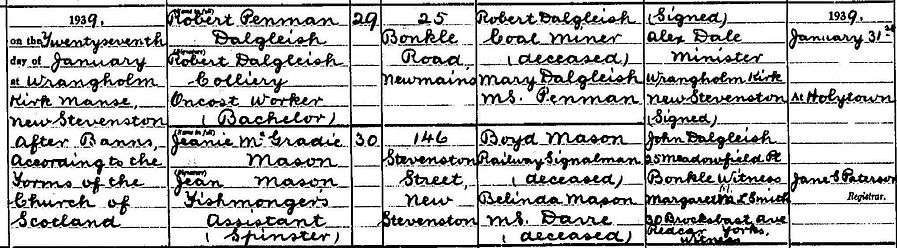 1939.
on the Twentyseventh
day of January
at Wrangholm
Kirk Manse,
New Stevenston
After Banns,
According to the
Forms of the
Church of
Scotland
(Name in full)
Robert Penman
Dalgleish
(Signature)
Robert Dalgleish
Colliery
Oncost Worker
(Bachelor)
(Name in full)
Jeanie McGradie
Mason
(Signature)
Jean Mason
Fishmongers
Assistant
(Spinster)
29
30
25
Bonkle
Road,
Newmains
146
Stevenston
Street,
New
Stevenston
Robert Dalgleish
Coal Miner
(deceased)
Mary Dalgleish
MS. Penman
Boyd Mason
Railway Signalman
(deceased)
Belinda Mason
MS.
(deceased)
(Signed)
Alex Dale
Minister
Wrangholm Kirk
New Stevenston
(Signed)
John Dalgleish
25 Meadowfield Pl
Bonkle Witness
Margaret Smith
Ave
Redcar Yorks.
Witness
1939.
January 31st
At Holytown
Jane G Paterson
Registrar.